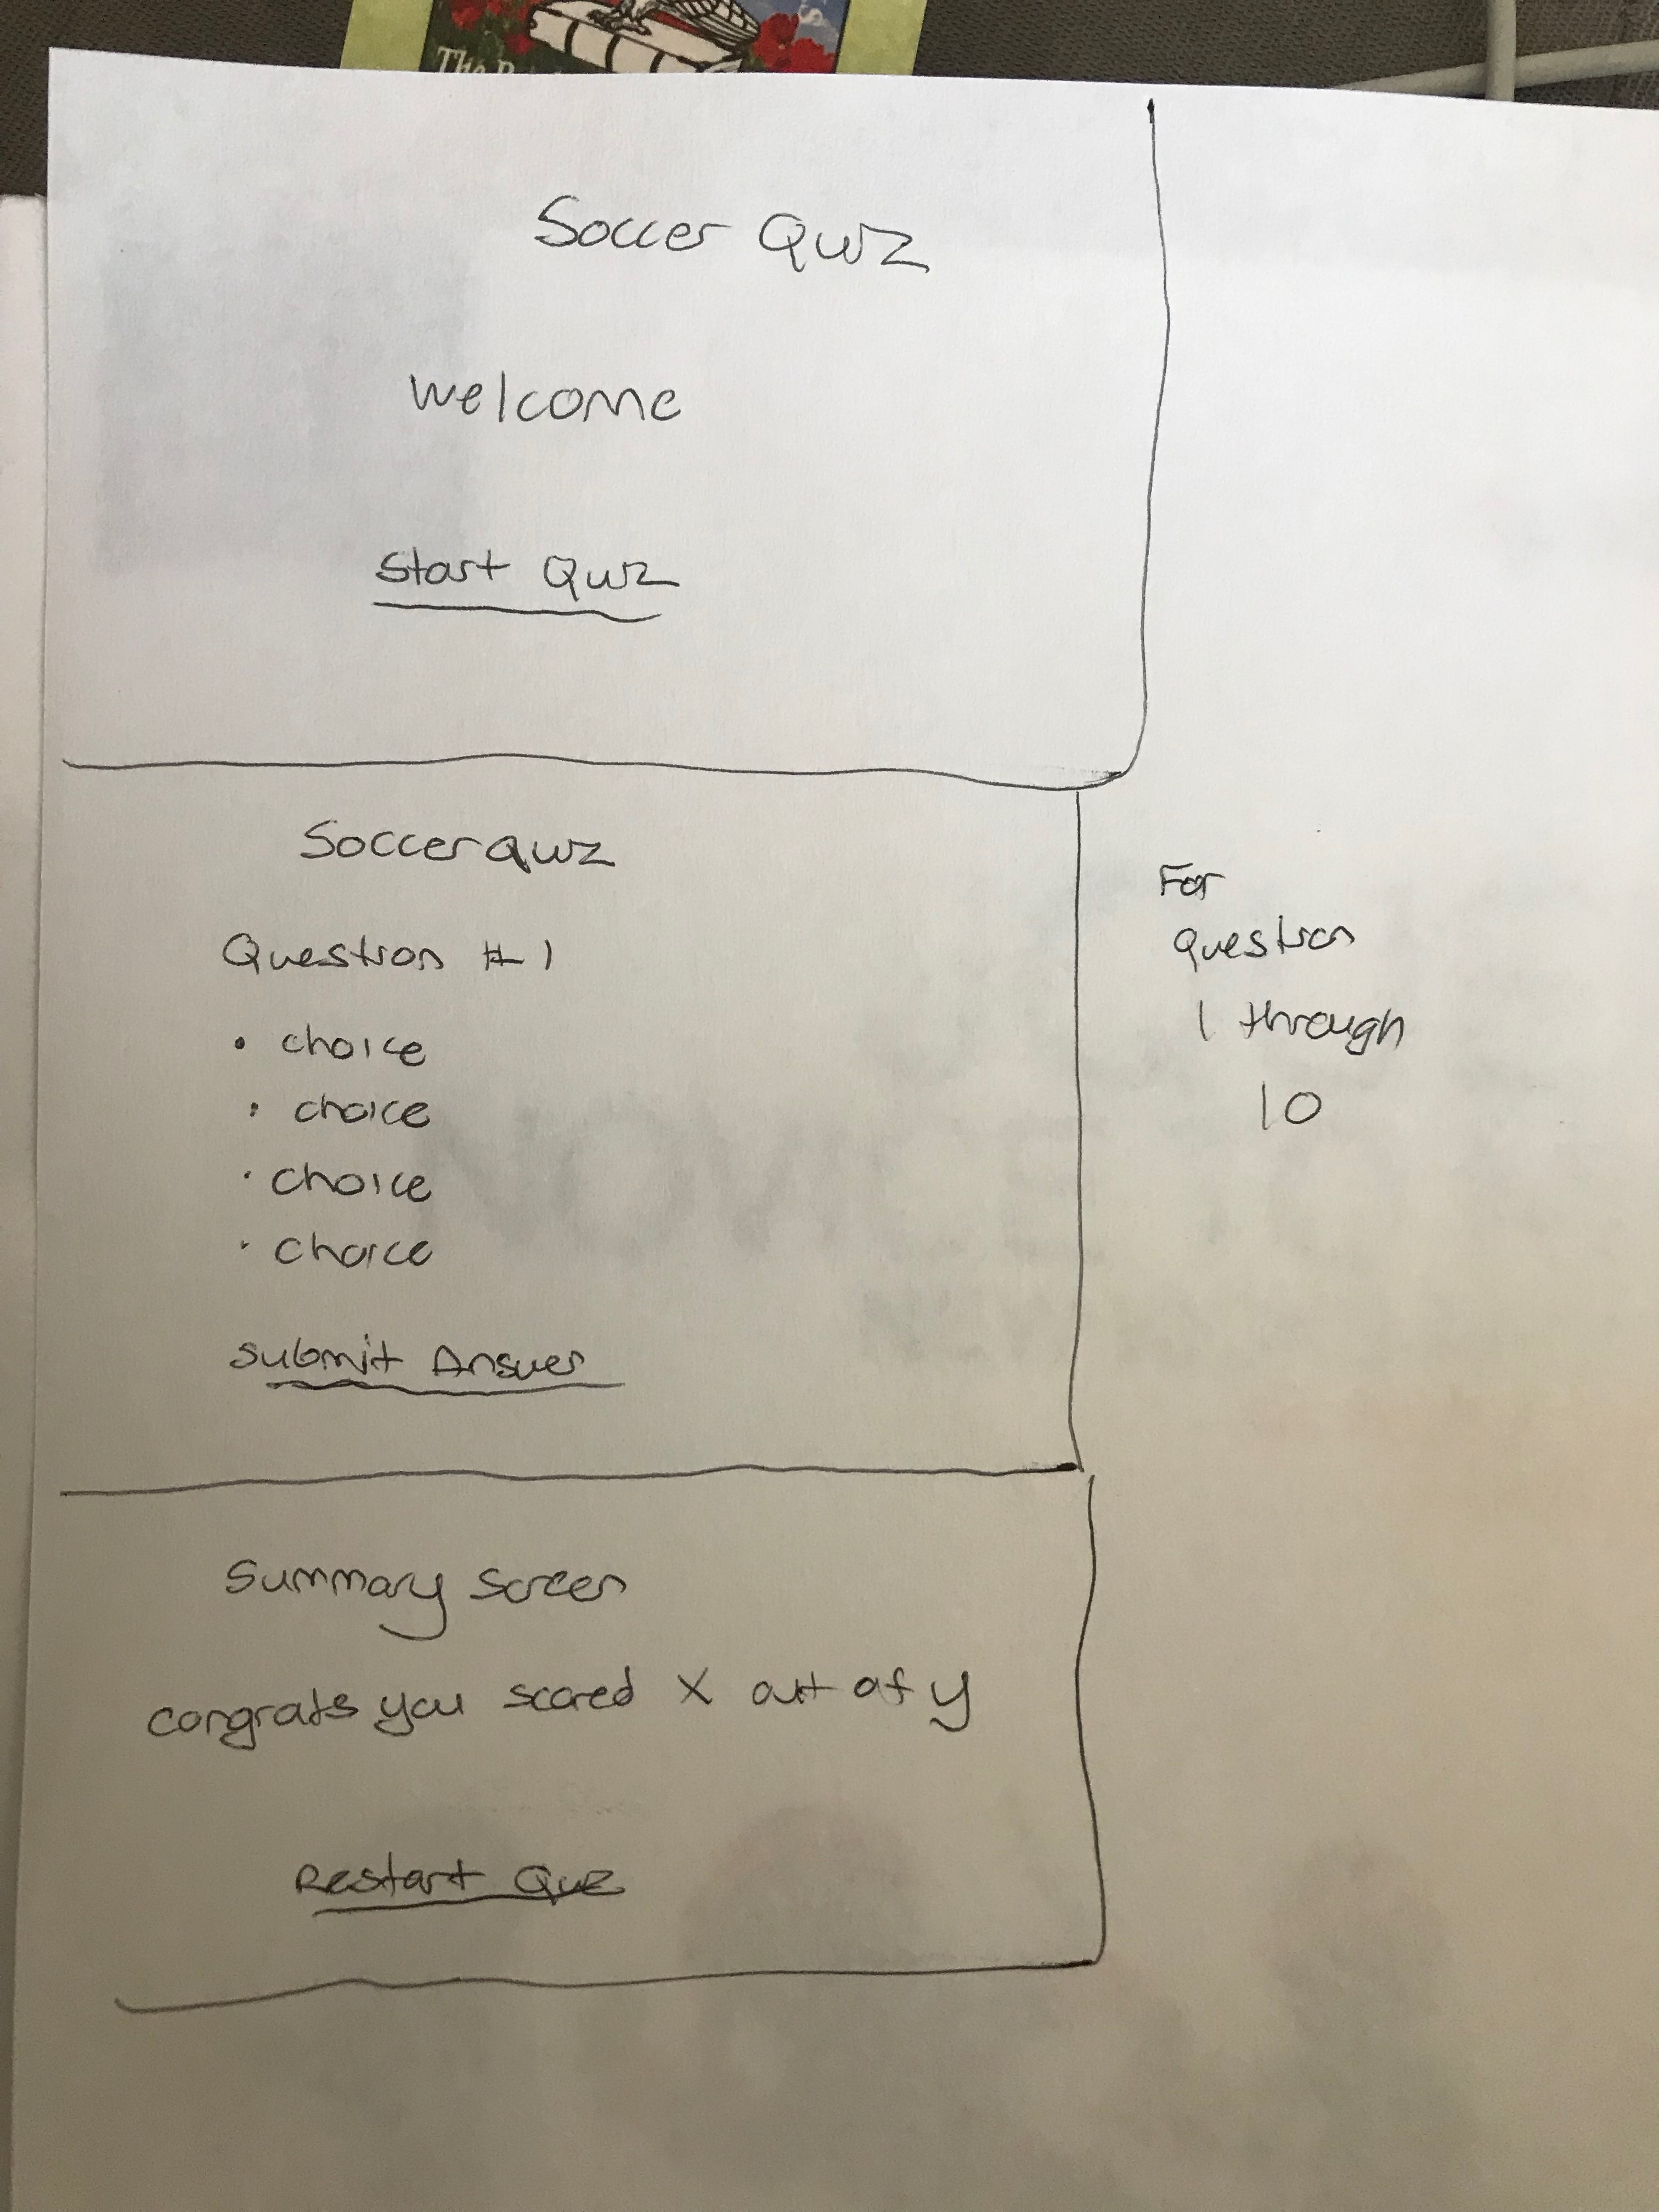 The
Soccer Quiz
Welcome
Start Quiz
Soccer quiz
Question #1
• choice
• choice
• choice
• choice
Submit Answer
For
question
1 through
10
Summary screen
congrats you scored X out of y
Restart Quiz